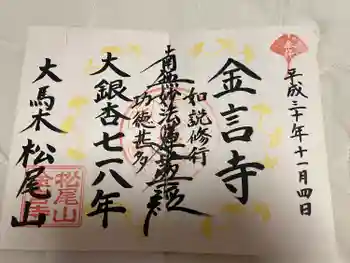 平成三十年十一月四日
金言寺
如説修行
南無妙法蓮華経
功徳甚多
大銀杏七一八年
大馬木 松尾山
松尾山
金言寺